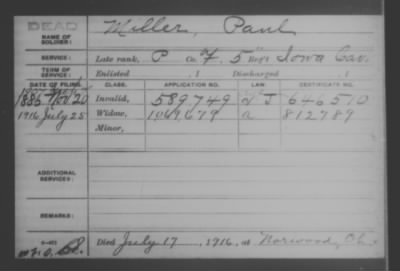 DEAD
NAME OF SOLDIER: Miller, Paul
SERVICE: Late rank, P Co. F, 5 Reg't Iowa Cav.
TERM OF SERVICE: Enlisted , 1 Discharged , 1
DATE OF FILING. CLASS. APPLICATION NO. CERTIFICATE NO.
1885 Nov. 20 Invalid, 589749 646510
1916 July 25 Widow, 1069679 a 812789
Minor,
ADDITIONAL SERVICES:
REMARKS:
Died July 17, 1916, at Norwood, Oh.